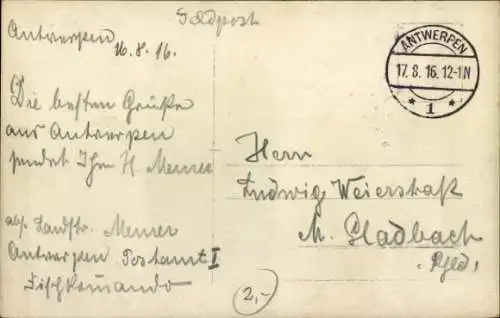 Feldpost
Antwerpen
16.8.16.
Die besten Grüße
aus Antwerpen
sendet Ihnen H. Menrer
abs. Landstr. Menrer
Antwerpen Postamt I
Tischkommando
ANTWERPEN
17.8.16.12-1N
* 1 *
Herrn
Ludwig Weierstraß
M. Gladbach
Rhld.
2,-